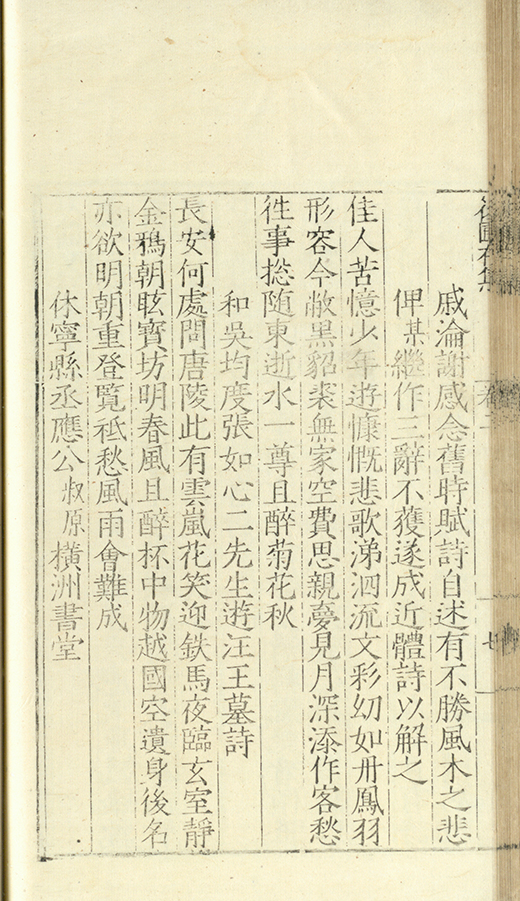 戚淪謝感念舊時賦詩自述有不勝風木之悲
俾某繼作三辭不獲遂成近體詩以解之
佳人苦憶少年遊慷慨悲歌涕泗流文彩幻如丹鳳羽
形容今敝黑貂裘無家空費思親夢見月深添作客愁
徃事捴随東逝水一尊且醉菊花秋
和吳均度張如心二先生遊汪王墓詩
長安何處問唐陵此有雲嵐花笑迎鉄馬夜臨玄室靜
金鴉朝眩寶坊明春風且醉杯中物越國空遺身後名
亦欲明朝重登覧祗愁風雨會難成
休寧縣丞應公叔原橫洲書堂
卷二
七